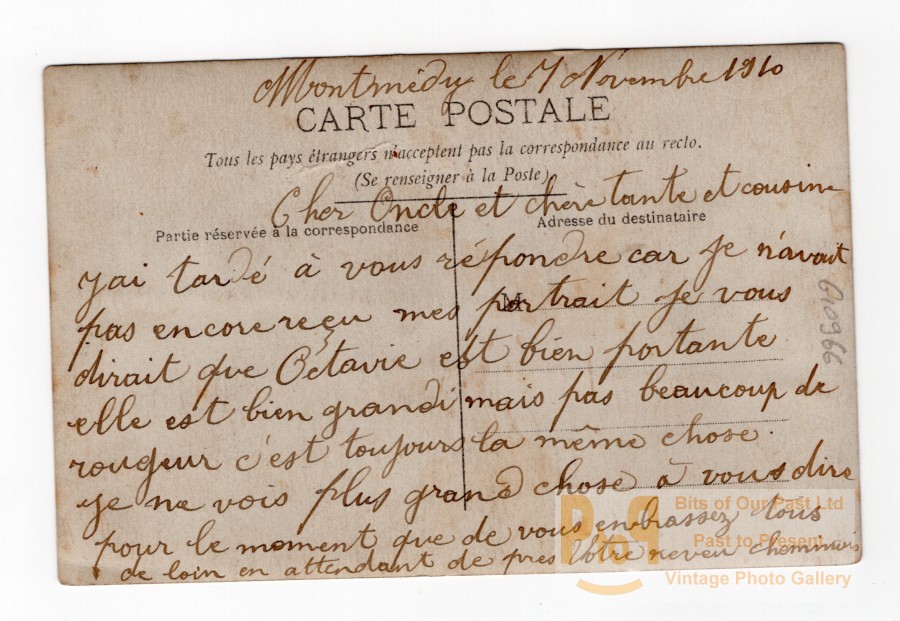 Montmédy le 7 Novembre 1910
CARTE POSTALE
Tous les pays étrangers n'acceptent pas la correspondance au recto.
(Se renseigner à la Poste)
Cher Oncle et chère tante et cousine
Partie réservée à la correspondance
Adresse du destinataire
j'ai tardé à vous répondre car je n'avait
pas encore reçu mes portrait je vous
dirait que Octavie est bien portante
elle est bien grandi mais pas beaucoup de
rougeur c'est toujours la même chose.
je ne vois plus grand chose à vous dire
pour le moment que de vous embrassez tous
de loin en attendant de pres Votre neveu
M
610966
BoPP
Bits of Our Past Ltd
Past to Present
Vintage Photo Gallery